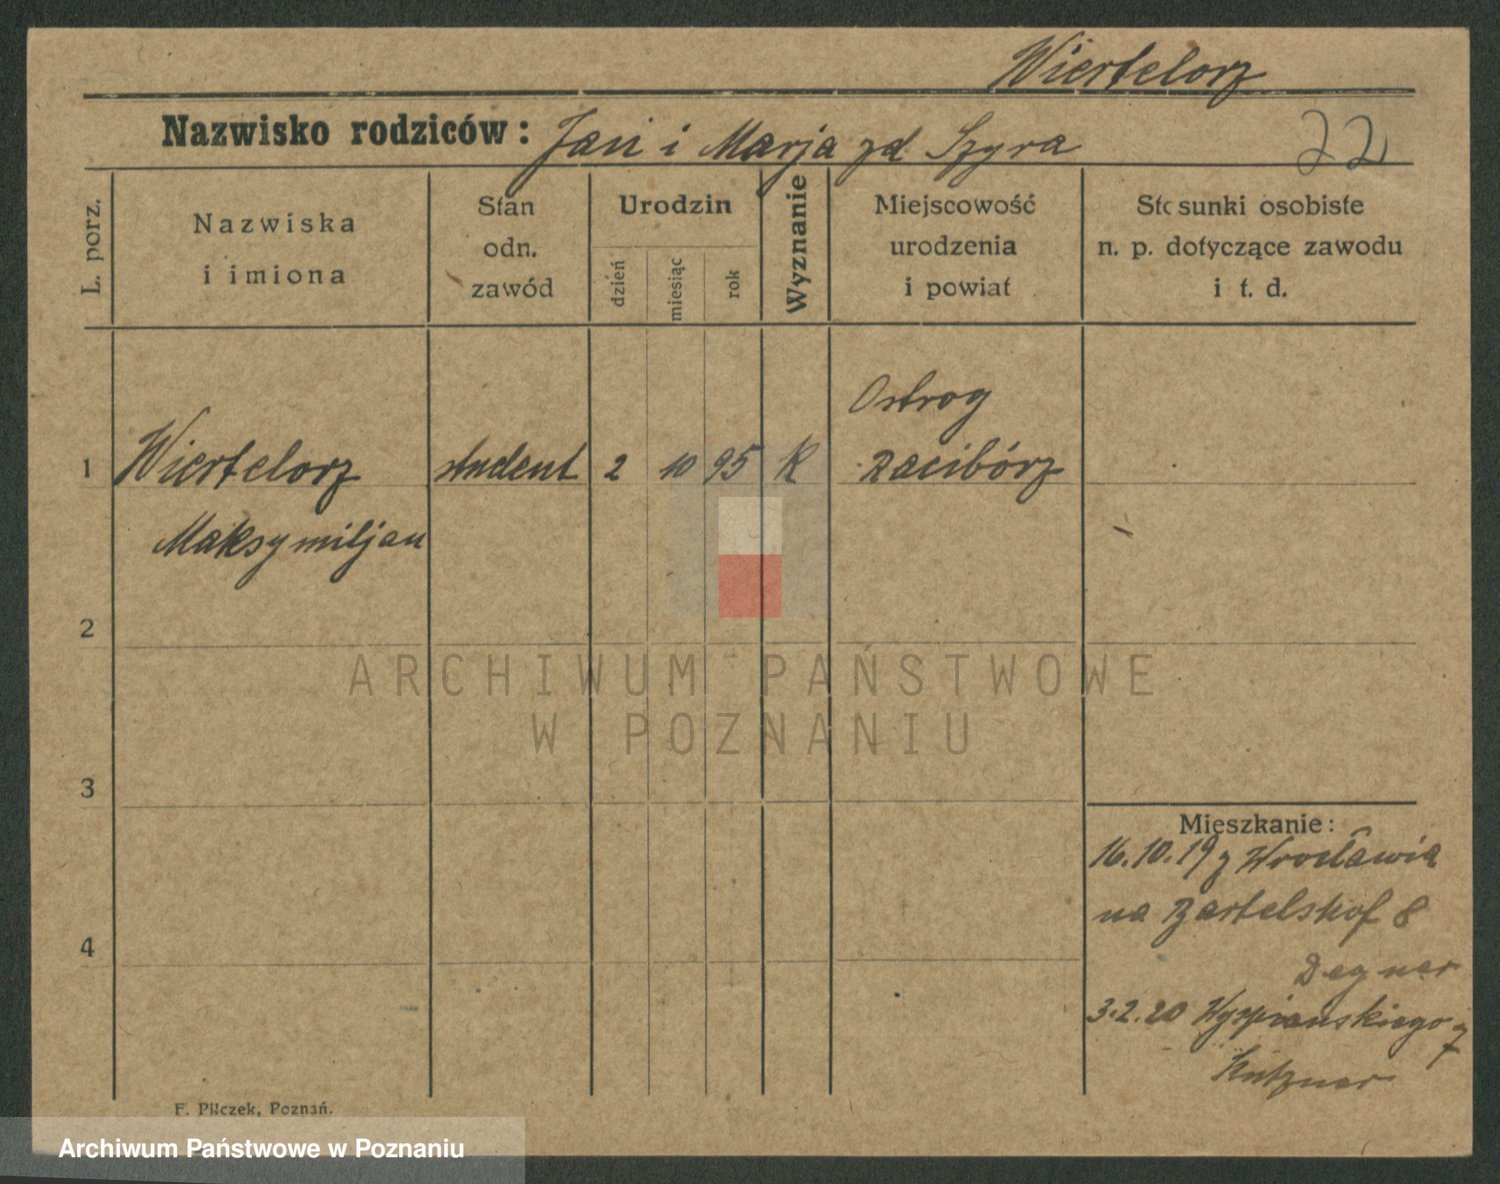 Wiertelorz
Nazwisko rodziców: Jan i Marja zd Szyra
22
L. porz.
Nazwiska
i imiona
Stan
odn.
zawód
Urodzin
dzień
miesiąc
rok
Wyznanie
Miejscowość
urodzenia
i powiat
Stosunki osobiste
n. p. dotyczące zawodu
i t. d.
Ostrog
1 Wiertelorz student 2 10 95 K Racibórz
Maksymiljan
2
3
4
Mieszkanie:
16.10.19 z Wrocławia
na Bartelshof 8
Degner
3.2.20 Wyspianskiego 7
F. Pilczek, Poznań.
ARCHIWUM PAŃSTWOWE
W POZNANIU
Archiwum Państwowe w Poznaniu